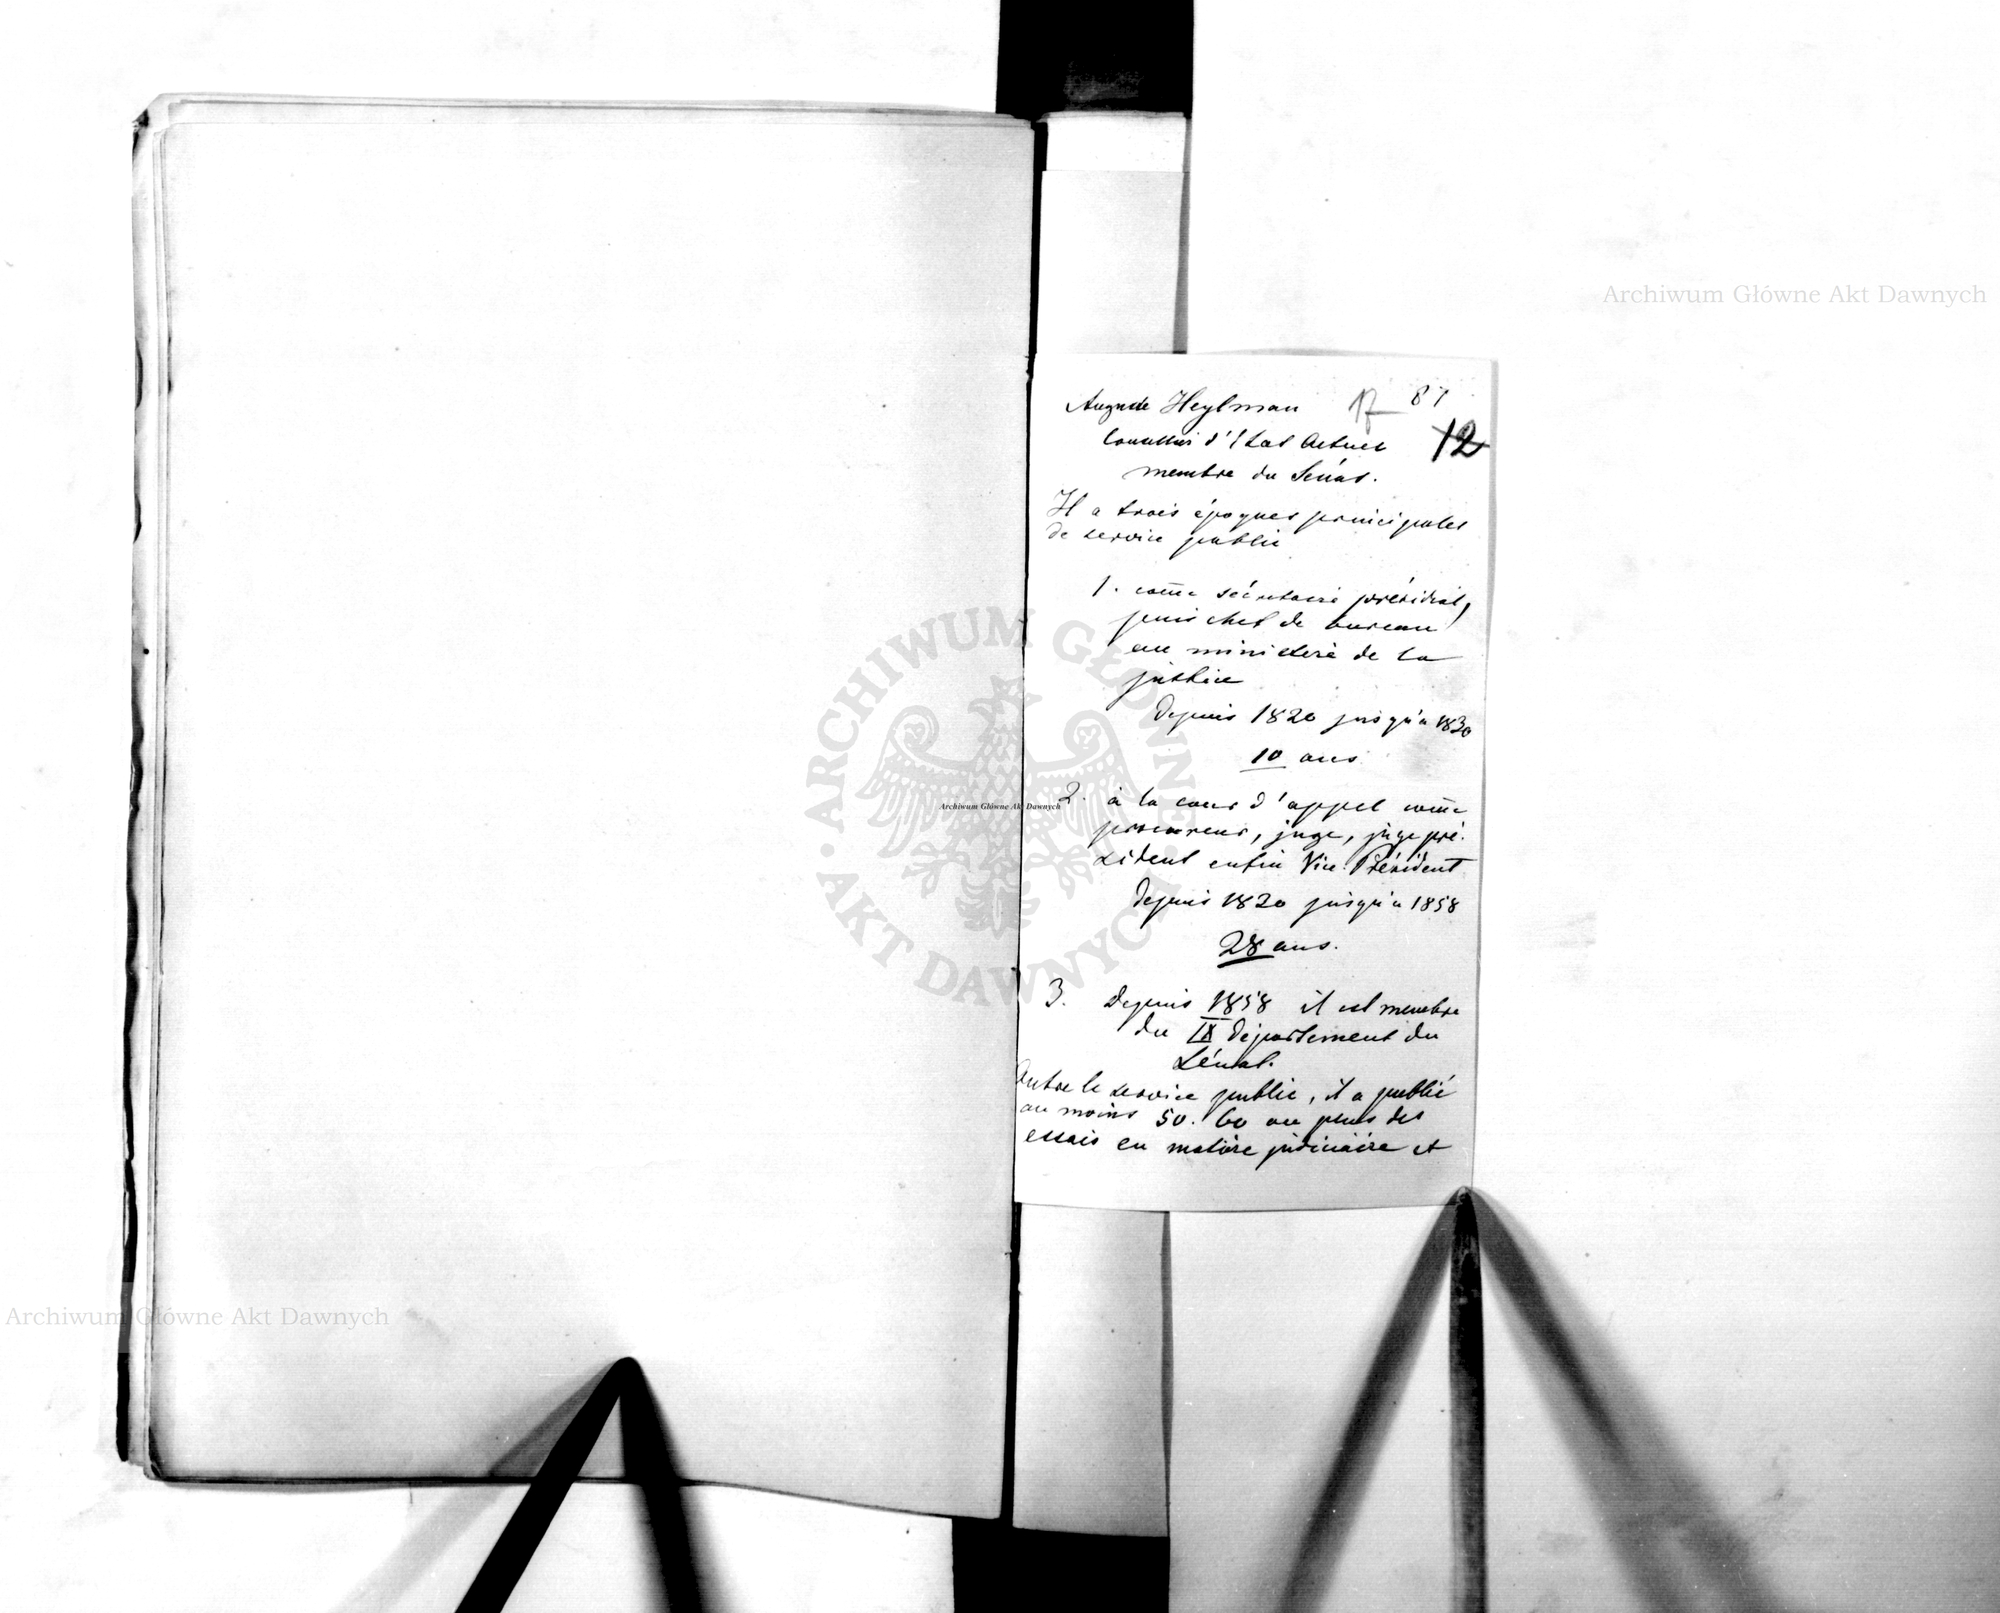 Auguste Heylman 17 87
Conseiller d'Etat Actuel 12
membre du Sénat.
Il a trois époques principales
de service public
1. come sécretaire présidial,
puis chef de bureau
au ministere de la
justice
depuis 1820 jusqu'a 1830
10 ans
2. à la cour d'appel come
procureur, juge, juge pré-
sident enfin Vice-Président
depuis 1830 jusqu'a 1858
28 ans.
3. depuis 1858 il est membre
du IX Département du
Sénat.
Outre le service public, il a publié
au moins 50. 60 ou plus des
essais en matière judiciaire et
Archiwum Główne Akt Dawnych
Archiwum Główne Akt Dawnych
Archiwum Główne Akt Dawnych
ARCHIWUM GŁÓWNE AKT DAWNYCH